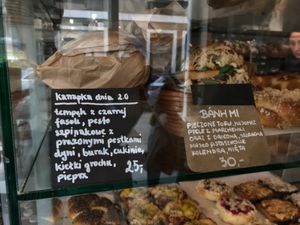 Kanapka dnia 2.0
tempeh z czarnej
fasoli, pesto
szpinakowe z
prażonymi pestkami
dyni, burak, cukinia,
kiełki grochu,
papryka 25,-
BÁNH MÌ
PIECZONE TOFU, WARZYWA
PIKLE Z MARCHEWKI
ORAZ Z DAIKONA, SRIRACHA
MAYO PISTACHIOWE
KOLENDRA MIĘTA
30,-